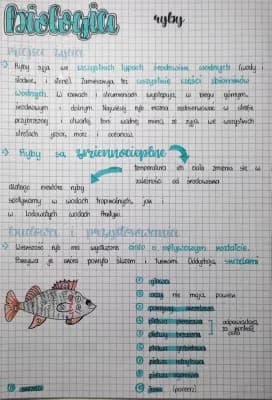 Biologia
ryby
miejsce życia
→ Ryby żyją we wszystkich typach środowisk wodnych (wody
słodkie, i słone). Zamieszkują też wszystkie części zbiorników
wodnych. W rzekach i strumieniach występują w biegu górnym,
środkowym i dolnym. Najwięcej ryb można zaobserwować w strefie
przybrzeżnej i otwartej toni wodnej mimo że żyją we wszystkich
strefach jezior, mórz i oceanów.
→ Ryby są zmiennocieplne
temperatura ich ciała zmienia się w
zależności od środowiska
dlatego niektóre ryby
spotykamy w wodach tropikalnych, jak i
w lodowatych wodach Arktyki.
budowa i przystosowania
→ Większość ryb ma wydłużone ciało o opływowym kształcie.
Pokryte je skóra pokryta śluzem i łuskami. Oddychają skrzelami
głowa
oczy nie mają powiek
płetwa
płetwy brzuszne
płetwa grzbietowa
płetwa
płetwa ogonowa
odpowiadają
za